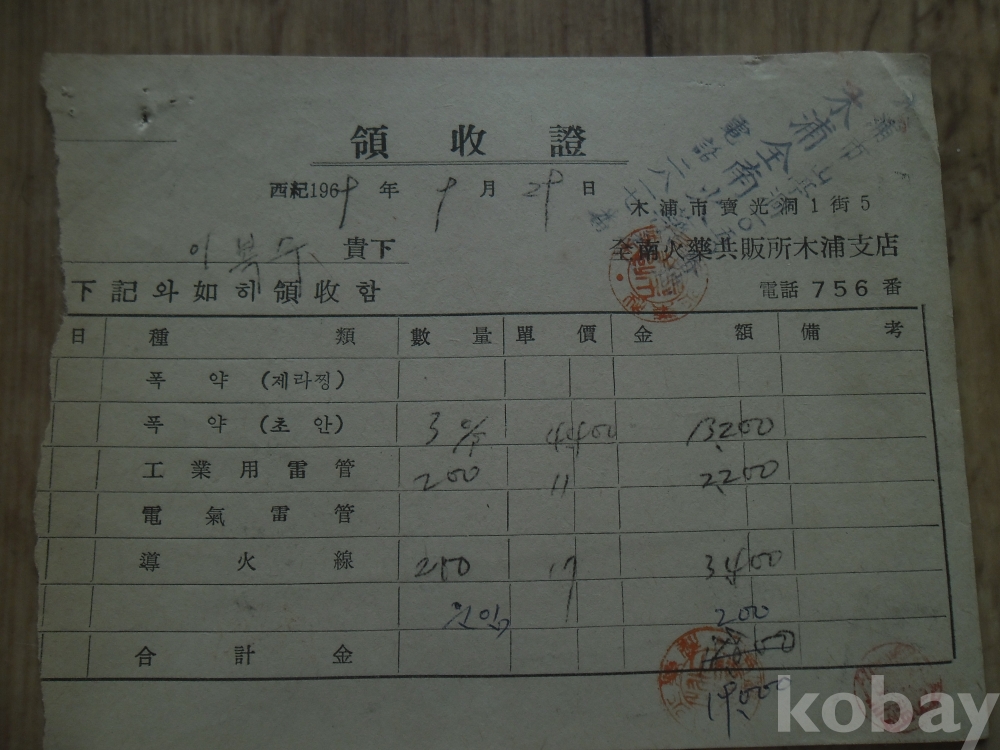 領收證
西紀1969年 9月 29日
木浦市寶光洞1街5
貴下
全南火藥共販所木浦支店
下記와如히領收함
電話 756番
日 種類 數量 單價 金額 備考
폭약 (제라찡)
폭약 (초안) 3 4400 13,200
工業用雷管 200 11 2,200
電氣雷管
導火線 200 17 3400
200
合計金
19,000
kobay